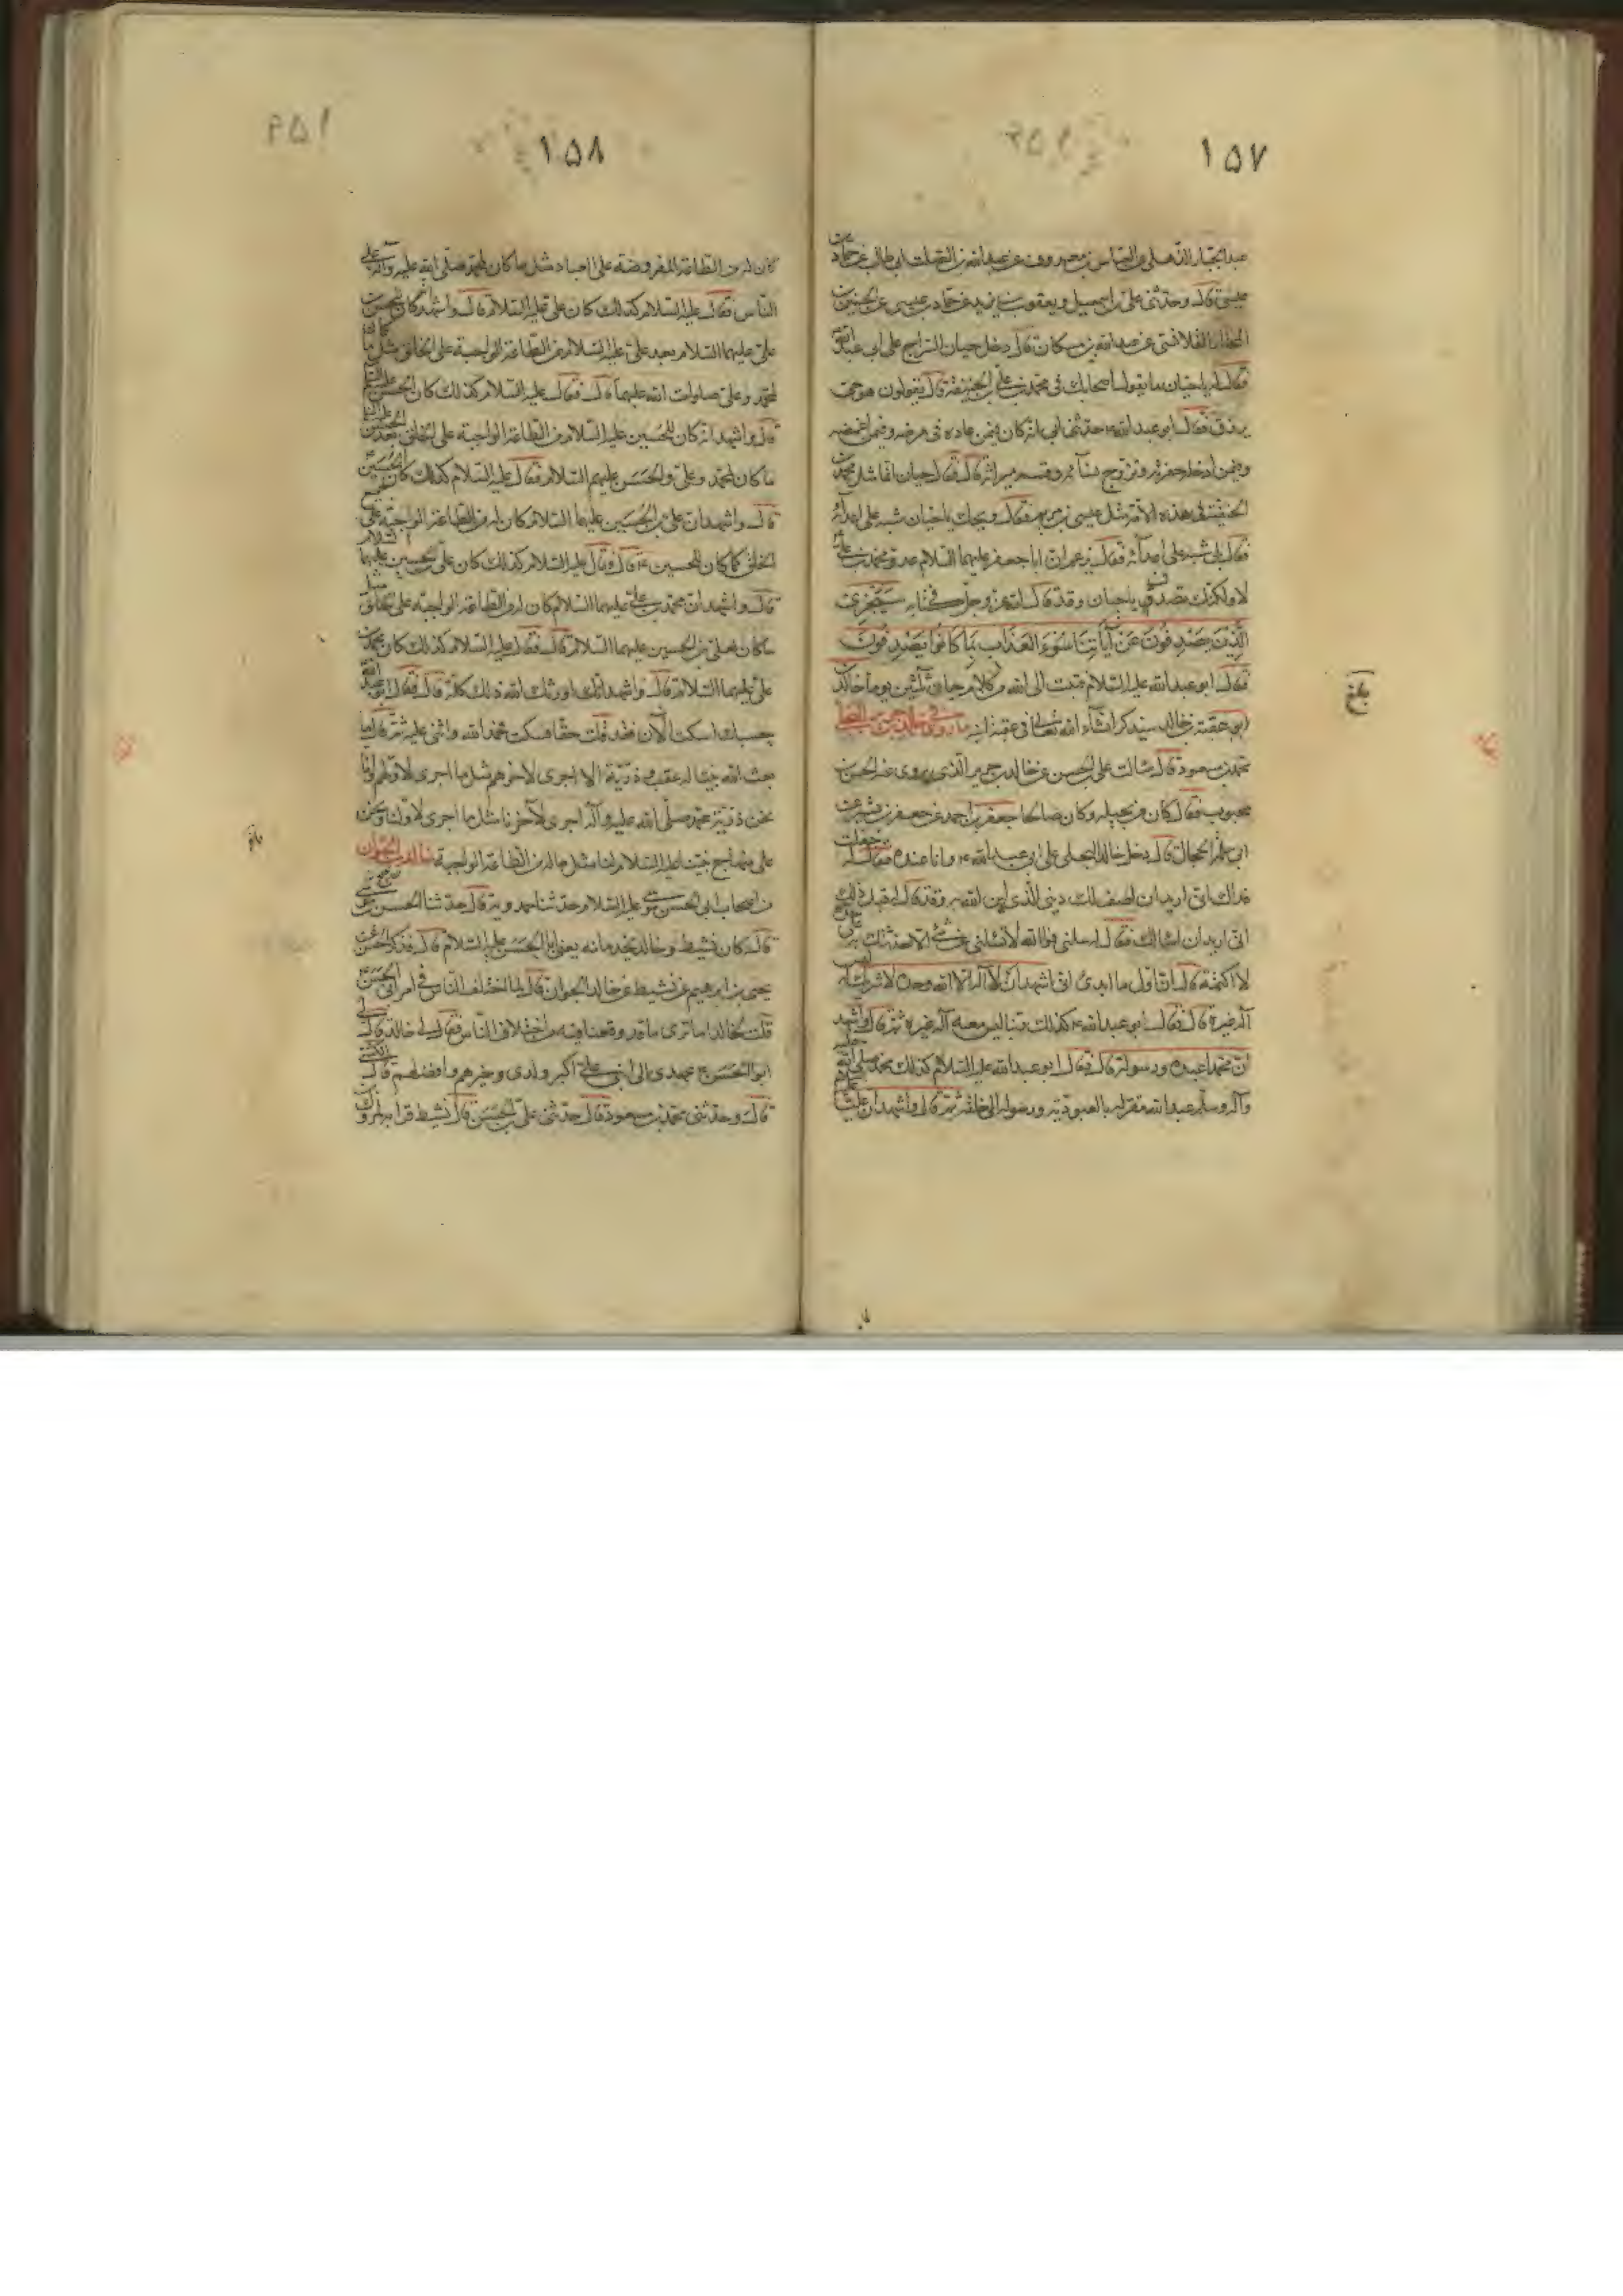 ١٥٧
عبد الجبار الذهلي عن العباس بن معروف عن عبد الله بن الصلت ابي طالب عن حماد بن
عيسى قال وحدثني علي بن اسمعيل ويعقوب بن يزيد عن حماد بن عيسى عن الحسين بن
المختار القلانسي عن عبد الله بن مسكان قال دخل حيان السراج على ابي عبد الله
فقال له يا حيان ما يقول اصحابك في محمد بن علي الحنفية قال يقولون هو حي
يرزق فقال ابو عبد الله ع حدثني ابي انه كان فيمن عاده في مرضه وفيمن اغمضه
وفيمن ادخله حفرته وتزوج نسآءه وقسم ميراثه قال فقال حيان انما مثل محمد بن
الحنفية في هذه الامة مثل عيسى بن مريم فقال ويحك يا حيان شبه على اعدائه
فقال بلى شبه على اعدآئه فقال تزعم ان ابا جعفر عليهما السلام عدو محمد بن علي
لا ولكنك تصدف يا حيان وقد قال الله عز وجل في كتابه سَيَجْزِي
الَّذِينَ يَصْدِفُونَ عَنْ آيَاتِنَا سُوءَ الْعَذَابِ بِمَا كَانُوا يَصْدِفُونَ
فقال ابو عبد الله عليه السلام فتبت الى الله من كلام حيان ثلثين يوما خالد بن
ابي خالد سيذكر انشآء الله تعالى في عقبة ابنه ما روي في خالد بن جرير البجلي
محمد بن مسعود قال سالت علي بن الحسن عن خالد بن جرير الذي يروي عنه الحسن بن
محبوب فقال كان من بجيلة وكان صالحا جعفر بن احمد عن جعفر بن بشير عن
ابي سلمة الجمال قال دخل خالد البجلي على ابي عبد الله ع وانا عنده فقال له جعلت
فداك اني اريد ان اصف لك ديني الذي ادين الله به وقد قال له قبل ذلك
اني اريد ان اسالك فقال له سلني فوالله لا تسئلني عن شئ الا حدثتك به على
لا اكتمه قال ان اول ما ابدئ اني اشهد ان لا اله الا الله وحده لا شريك له ليس
اله غيره قال فقال ابو عبد الله ع كذلك ربنا ليس معه اله غيره ثم قال واشهد
ان محمدا عبده ورسوله قال فقال ابو عبد الله عليه السلام كذلك محمد صلى الله عليه
وآله وسلم عبد الله مقر له بالعبودية ورسوله الى خلقه ثم قال واشهد ان عليا
بلغ
١٥٨
كان له من الطاعة المفروضة على العباد مثل ما كان لمحمد صلى الله عليه وآله على
الناس فقال عليه السلام كذلك كان علي عليه السلام قال واشهد انه كان للحسن بن
علي عليهما السلام بعد علي عليه السلام من الطاعة الواجبة على الخلق مثل ما كان
لمحمد وعلي صلوات الله عليهما قال فقال عليه السلام كذلك كان الحسن عليه السلام
قال واشهد انه كان للحسين عليه السلام من الطاعة الواجبة على الخلق بعد الحسن
ما كان لمحمد وعلي والحسن عليهم السلام فقال عليه السلام كذلك كان الحسين
قال واشهد ان علي بن الحسين عليهما السلام كان له من الطاعة الواجبة على جميع
الخلق كما كان للحسين ع قال وقال عليه السلام كذلك كان علي بن الحسين عليهما السلام
قال واشهد ان محمد بن علي عليهما السلام كان له من الطاعة الواجبة على الخلق مثل
ما كان لعلي بن الحسين عليهما السلام قال فقال عليه السلام كذلك كان محمد بن
علي عليهما السلام قال واشهد انك اورثك الله ذلك كله قال فقال ابو عبد الله
حسبك اسكت الآن فقد قلت حقا فسكت فحمد الله واثنى عليه ثم قال ما
بعث الله نبيا له عقب وذرية الا اجرى لآخرهم مثل ما اجرى لاولهم وانا
نحن ذرية محمد صلى الله عليه وآله اجرى لآخرنا مثل ما اجرى لاولنا ونحن
على منهاج نبينا عليه السلام لنا مثل ما له من الطاعة الواجبة خالد الجوان
من اصحاب ابي الحسن موسى عليه السلام حدثنا حمدويه قال حدثنا الحسن بن موسى
قال كان نشيط وخالد يخدمانه يعني ابا الحسن عليه السلام قال فذكر الحسن عن
يحيى بن ابرهيم عن نشيط عن خالد الجوان قال لما اختلف الناس في امر ابي الحسن ع
قلت لخالد اما ترى ما قد وقعنا فيه من اختلاف الناس فقال لي خالد قال لي
ابو الحسن ع عهدي الى ابني علي اكبر ولدي وخيرهم وافضلهم قال
قال وحدثني محمد بن مسعود قال حدثني علي بن الحسن قال نشيط قرابة لمروك
بلغ